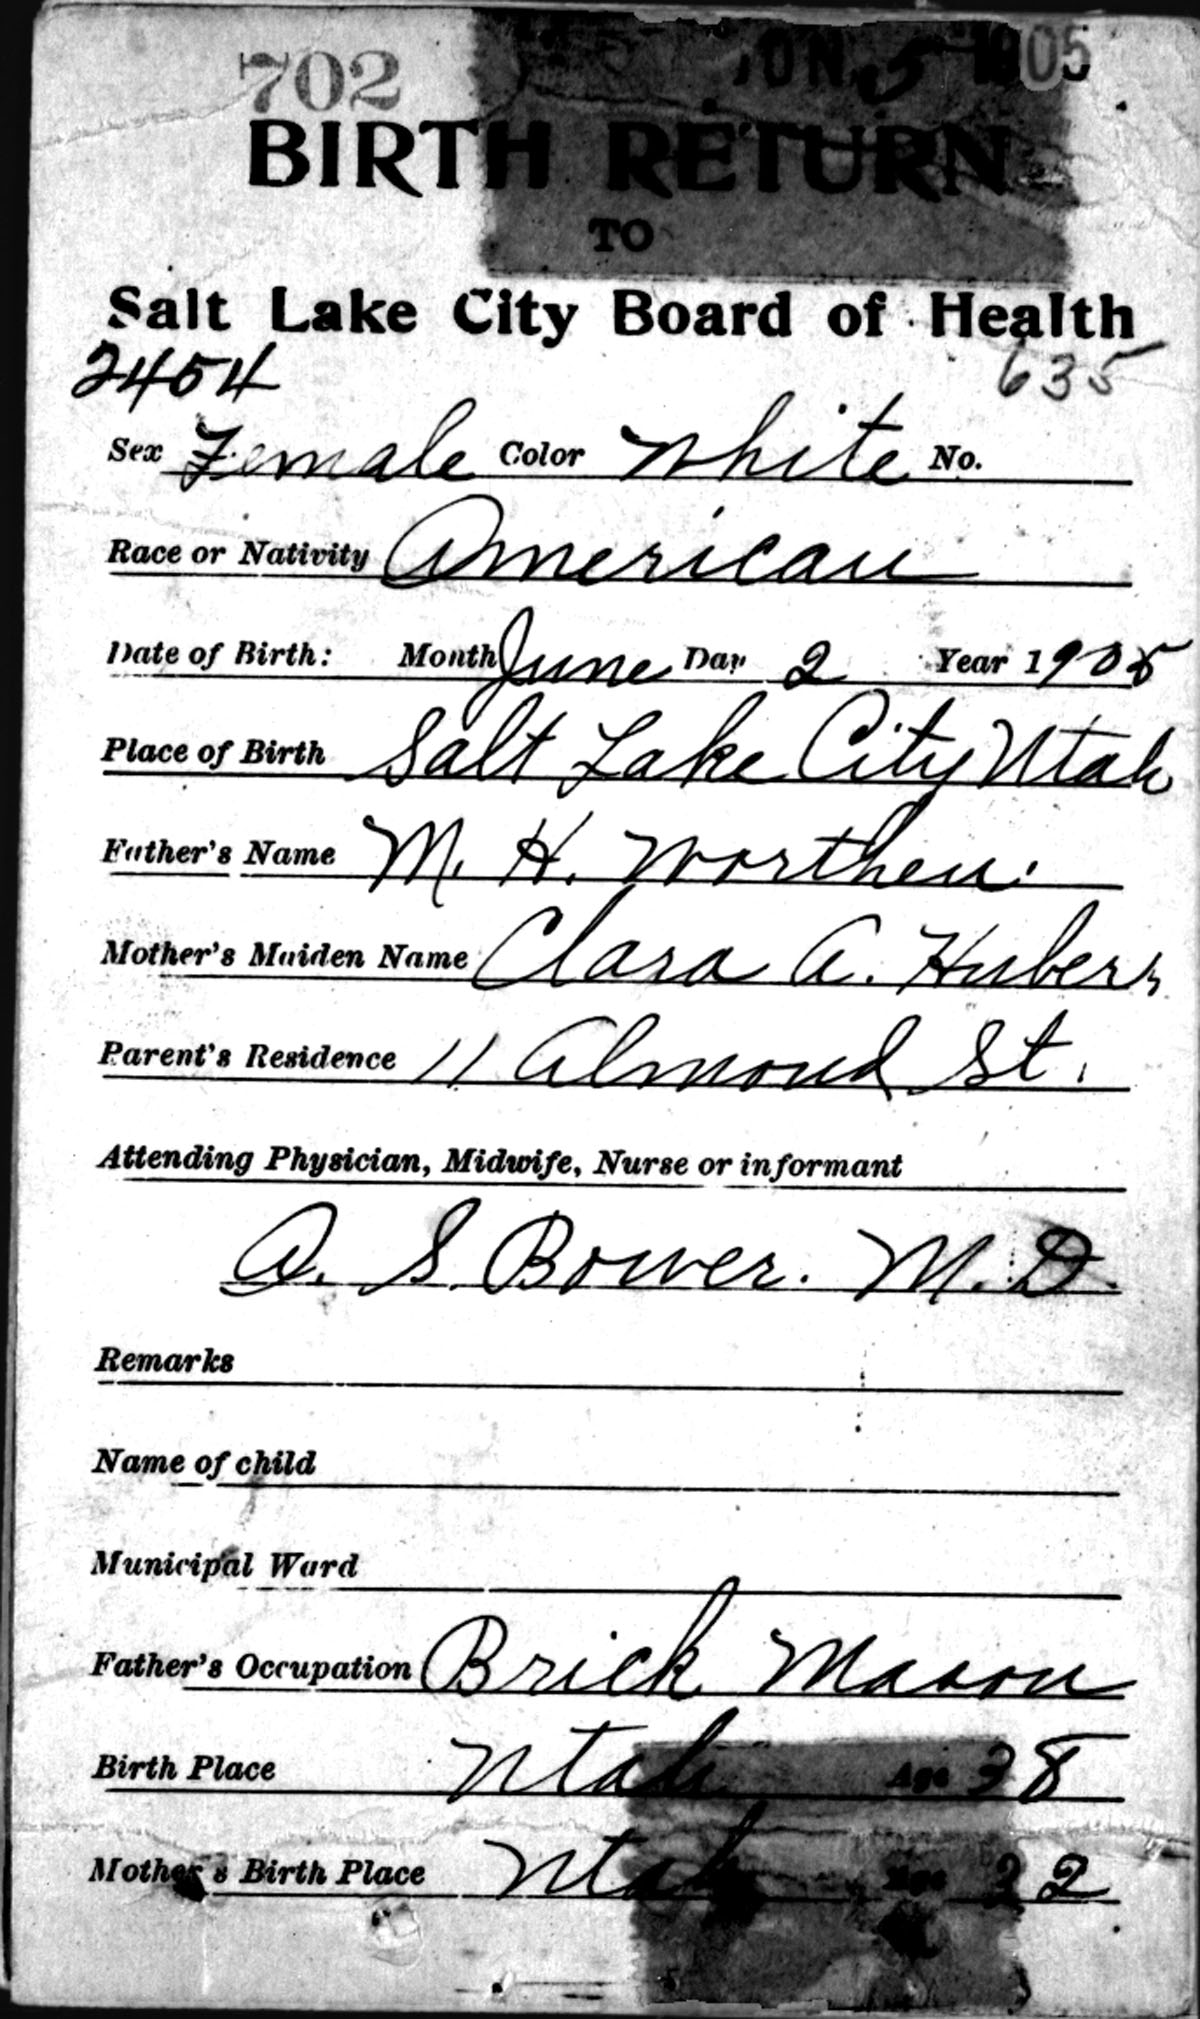 702 JUN 5 1905
BIRTH RETURN
TO
Salt Lake City Board of Health
2454 635
Sex Female Color White No.
Race or Nativity American
Date of Birth: Month June Day 2 Year 1905
Place of Birth Salt Lake City Utah
Father's Name M. H. Worthen.
Mother's Maiden Name Clara A. Hubers
Parent's Residence 11 Almond St.
Attending Physician, Midwife, Nurse or informant
A. S. Bower. M. D.
Remarks
Name of child
Municipal Ward
Father's Occupation Brick Mason
Birth Place Utah Age 38
Mother's Birth Place Utah Age 22